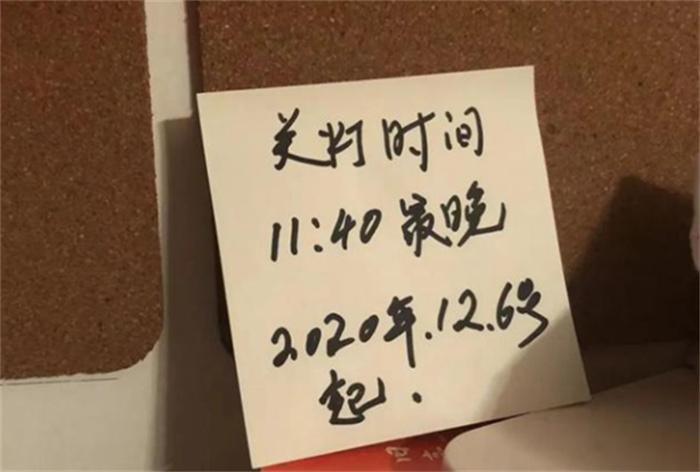 关灯时间
11:40最晚
2020年.12.6号
起.